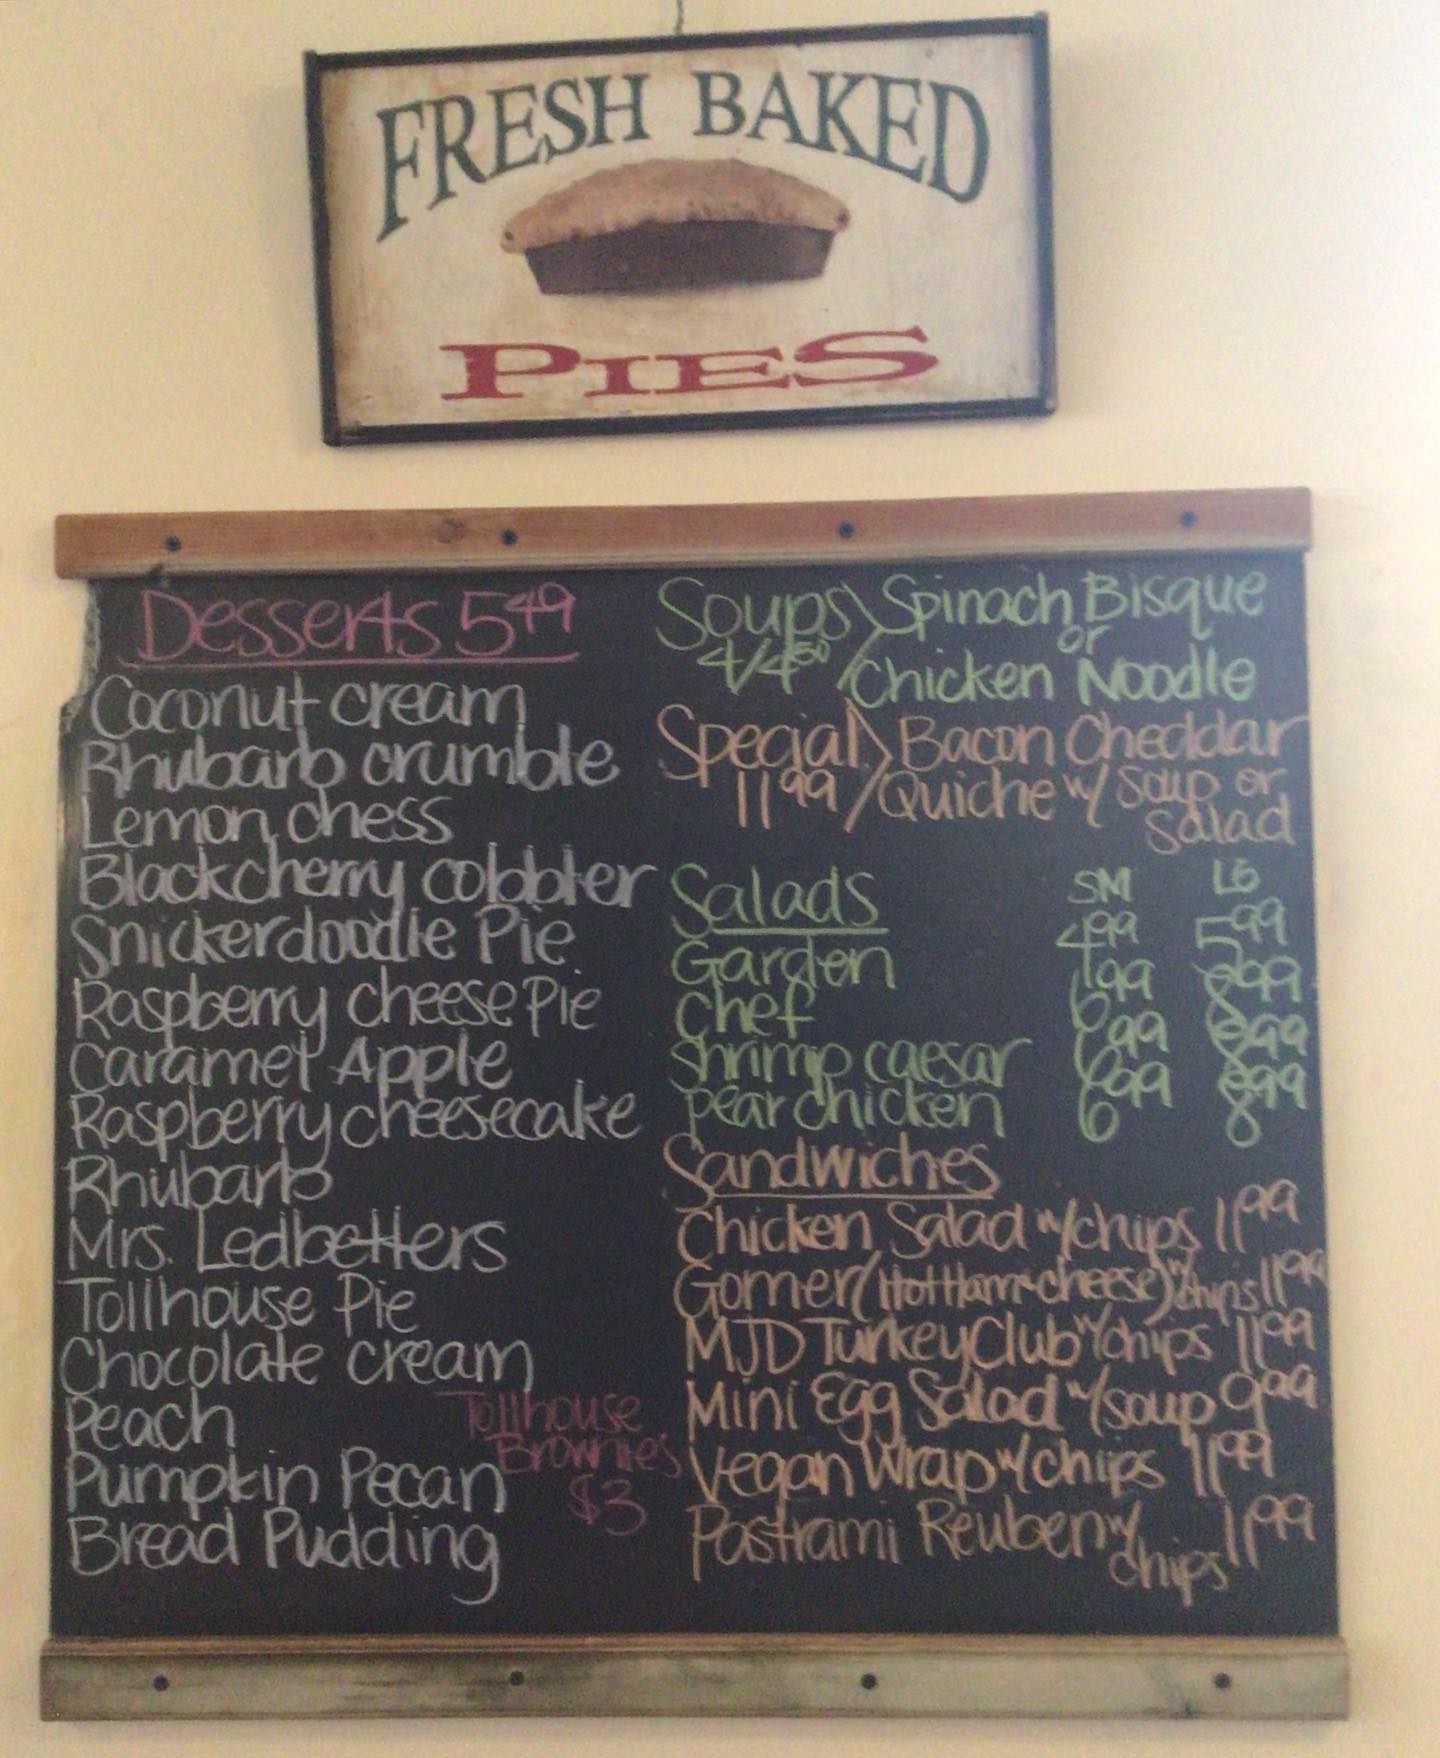 FRESH BAKED
PIES
Desserts 5.49
Coconut cream
Rhubarb crumble
Lemon chess
Blackcherry cobbler
Snickerdoodle Pie
Raspberry cheese Pie
Caramel Apple
Raspberry cheesecake
Rhubarb
Mrs. Ledbetters
Tollhouse Pie
Chocolate cream
Peach
Pumpkin Pecan
Bread Pudding
Tollhouse
Brownies
$3
Soups Spinach Bisque
or
4/4.50 Chicken Noodle
Special Bacon Cheddar
11.99 Quiche w/ Soup or
Salad
Salads SM LG
Garden 4.99 5.99
Chef 6.99 8.99
Shrimp caesar 6.99 8.99
pear chicken 6.99 8.99
Sandwiches
Chicken Salad w/chips 11.99
Gomer (Hot Ham & cheese) w/ chips 11.99
MJD Turkey Club w/chips 11.99
Mini Egg Salad w/soup 9.99
Vegan Wrap w/chips 11.99
Pastrami Reuben w/ 11.99
chips